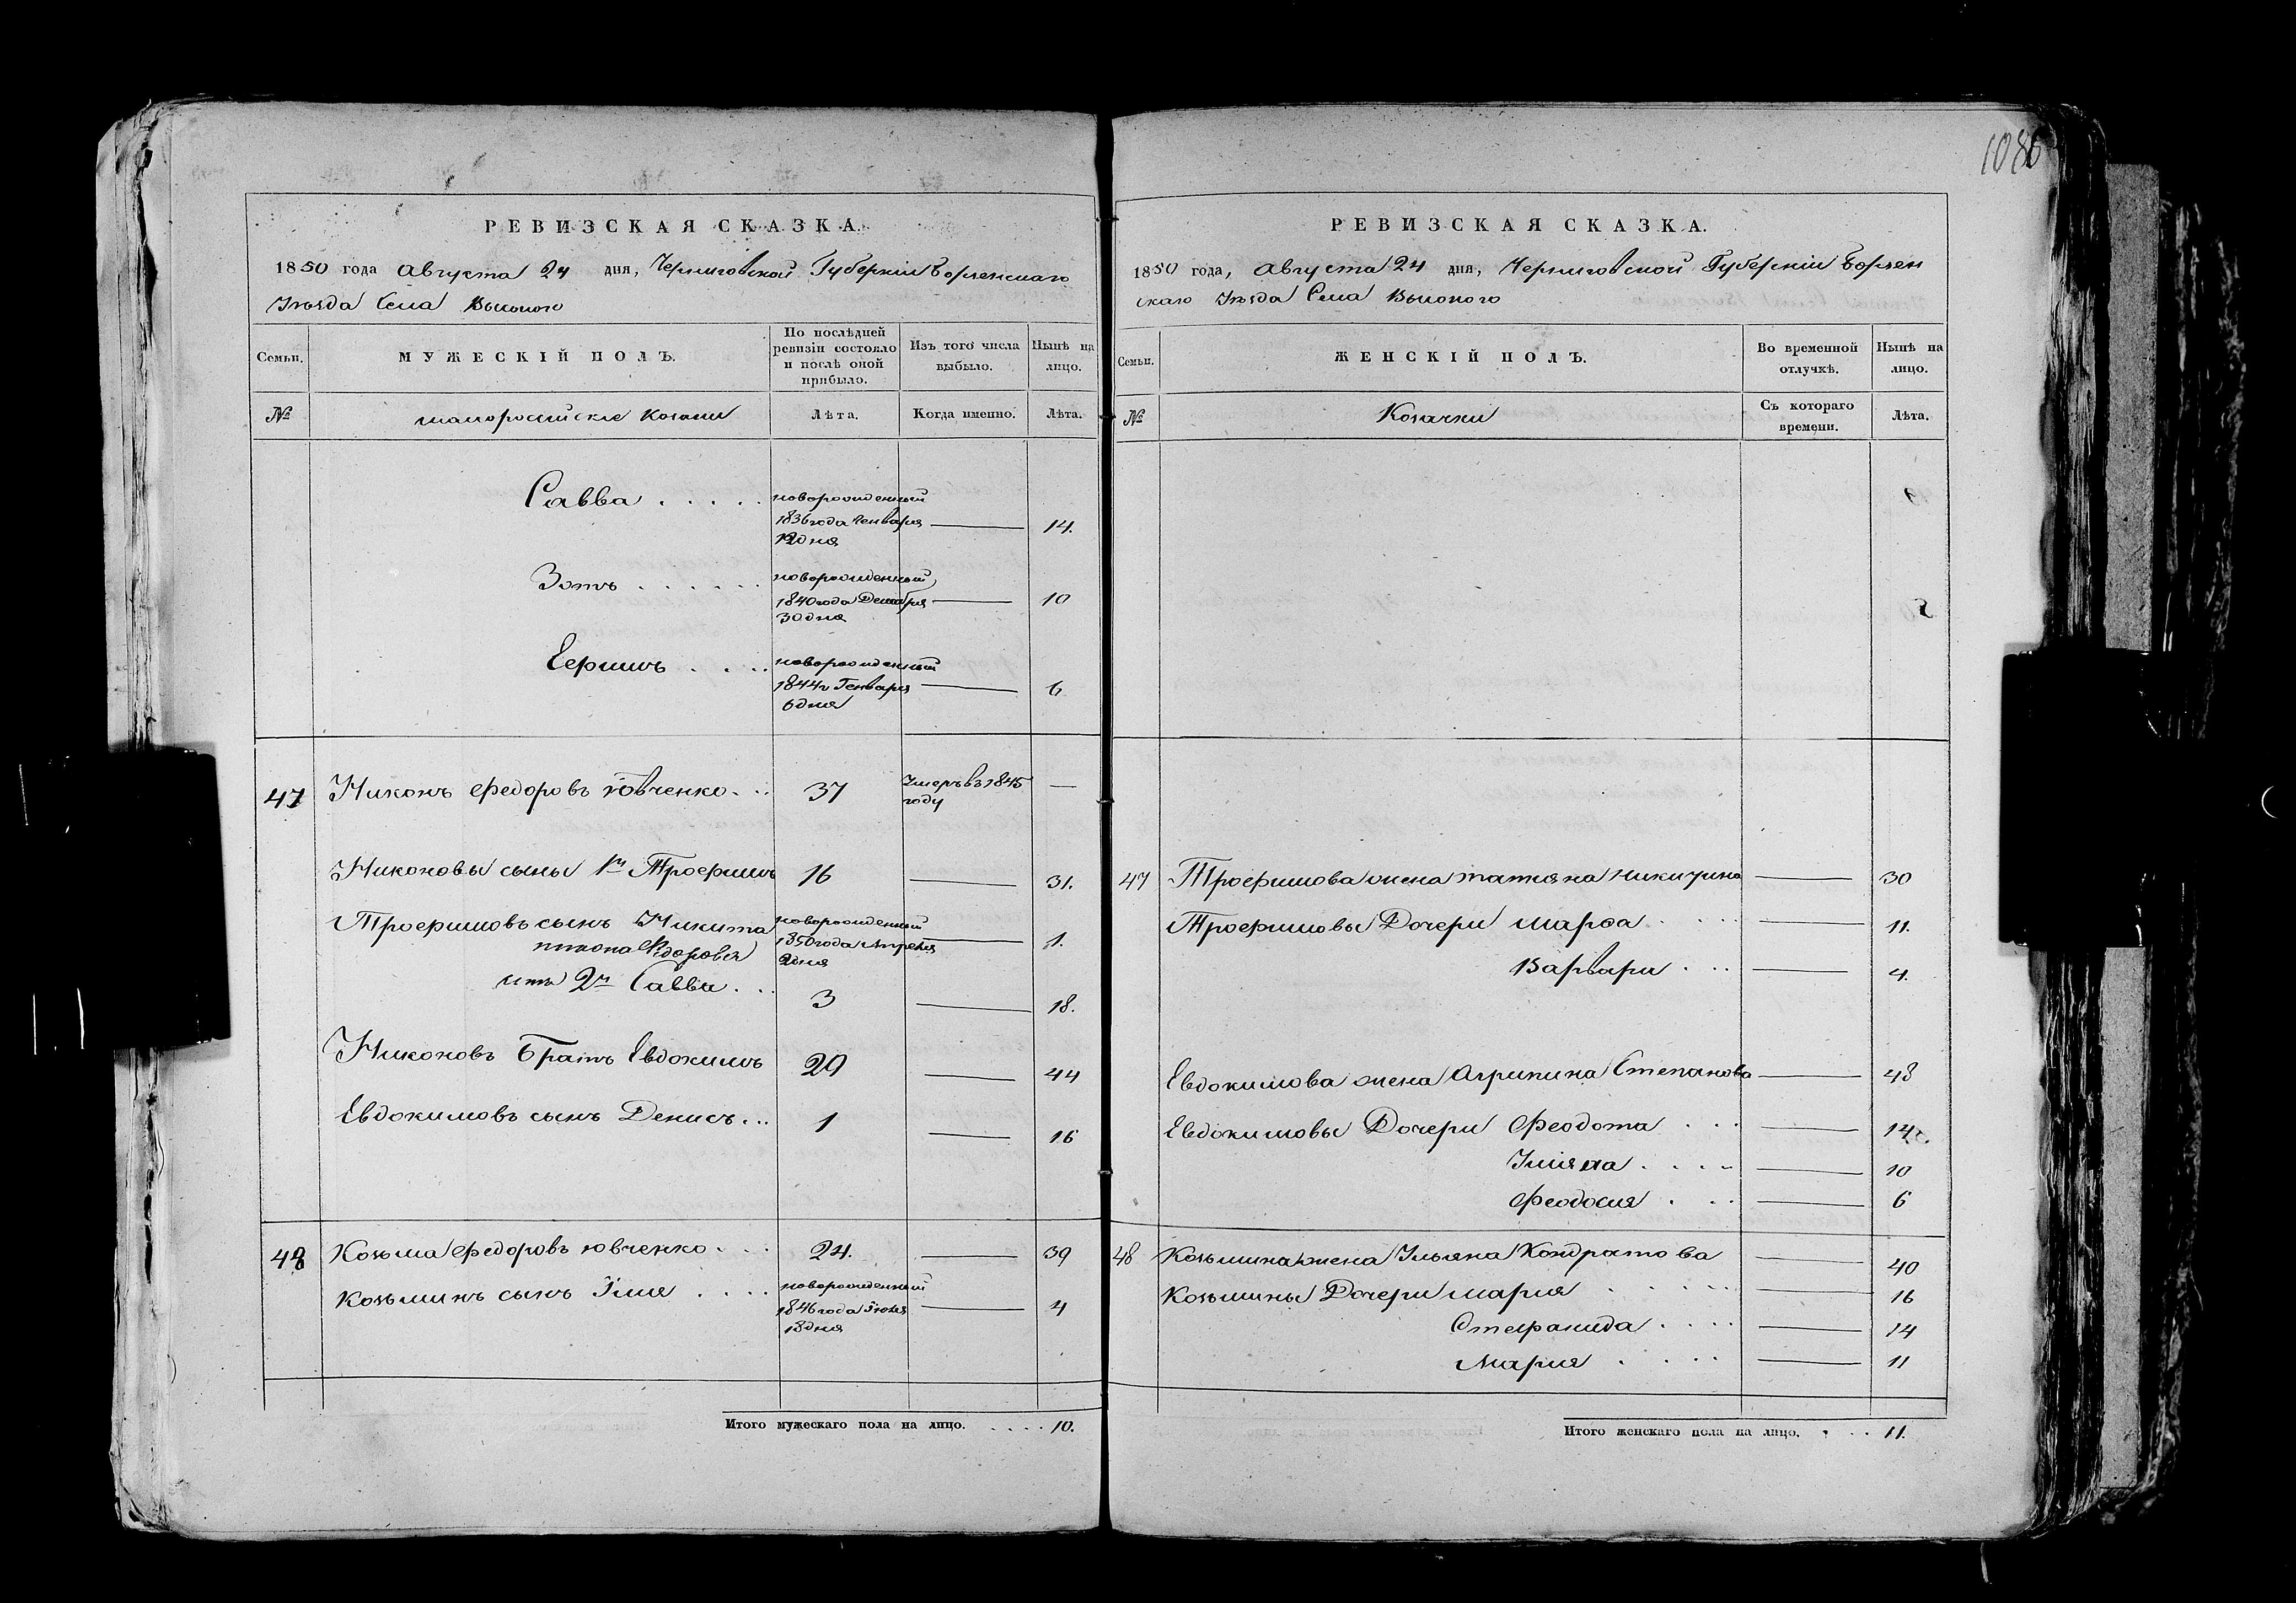 1086
РЕВИЗСКАЯ СКАЗКА.
1850 года Августа 24 дня, Черниговской Губерніи Борзенскаго
Уѣзда Села Высокого
Семьи. МУЖЕСКІЙ ПОЛЪ. По послѣдней ревизіи состояло и послѣ оной прибыло. Изъ того числа выбыло. Нынѣ на лицо.
№ малоросiйскiе козаки Лѣта. Когда именно. Лѣта.
Савва . . . . . новорожденный
1836 года Генваря 14.
12 дня
Зотъ . . . . . . новорожденный
1840 года Декабря 10
30 дня
Ефимъ . . . . новорожденный
1844 г Генваря 6
6 дня
47 Никонъ Федоровъ Ювченко . . . 37 Умеръ въ 1845 году —
Никоновы сыны 1й Трофимъ 16 — 31.
Трофимовъ сынъ Никита новорожденный
1850 года Апреля 1.
2 дня
Никона Федорова
2й Савва . . . 3 — 18.
Никоновъ Братъ Евдокимъ 29 — 44
Евдокимовъ сынъ Денисъ . . . 1 — 16
48 Козьма Федоровъ Ювченко . . . 24. — 39
Козьминъ сынъ Илiя . . . . новорожденный
1846 года Iюня 4
18 дня
Итого мужескаго пола на лицо. . . . . 10.
РЕВИЗСКАЯ СКАЗКА.
1850 года, Августа 24 дня, Черниговской Губерніи Борзен
скаго Уѣзда Села Высокого
Семьи. ЖЕНСКІЙ ПОЛЪ. Во временной отлучкѣ. Нынѣ на лицо.
№ Козачки Съ котораго времени. Лѣта.
47 Трофимова жена Татяна Никитина — 30
Трофимовы Дочери Марфа . . . . — 11.
Варвара . . . — 4.
Евдокимова жена Агрипина Степанова — 48
Евдокимовы Дочери Феодота . . . — 14.
Улiяна . . . . — 10
Феодосия . . . — 6
48 Козьмина жена Ульяна Кондратова — 40
Козьмины Дочери Мария . . . . . — 16
Стефанида . . . . — 14
Мария . . . . . — 11
Итого женскаго пола на лицо. . . . 11.